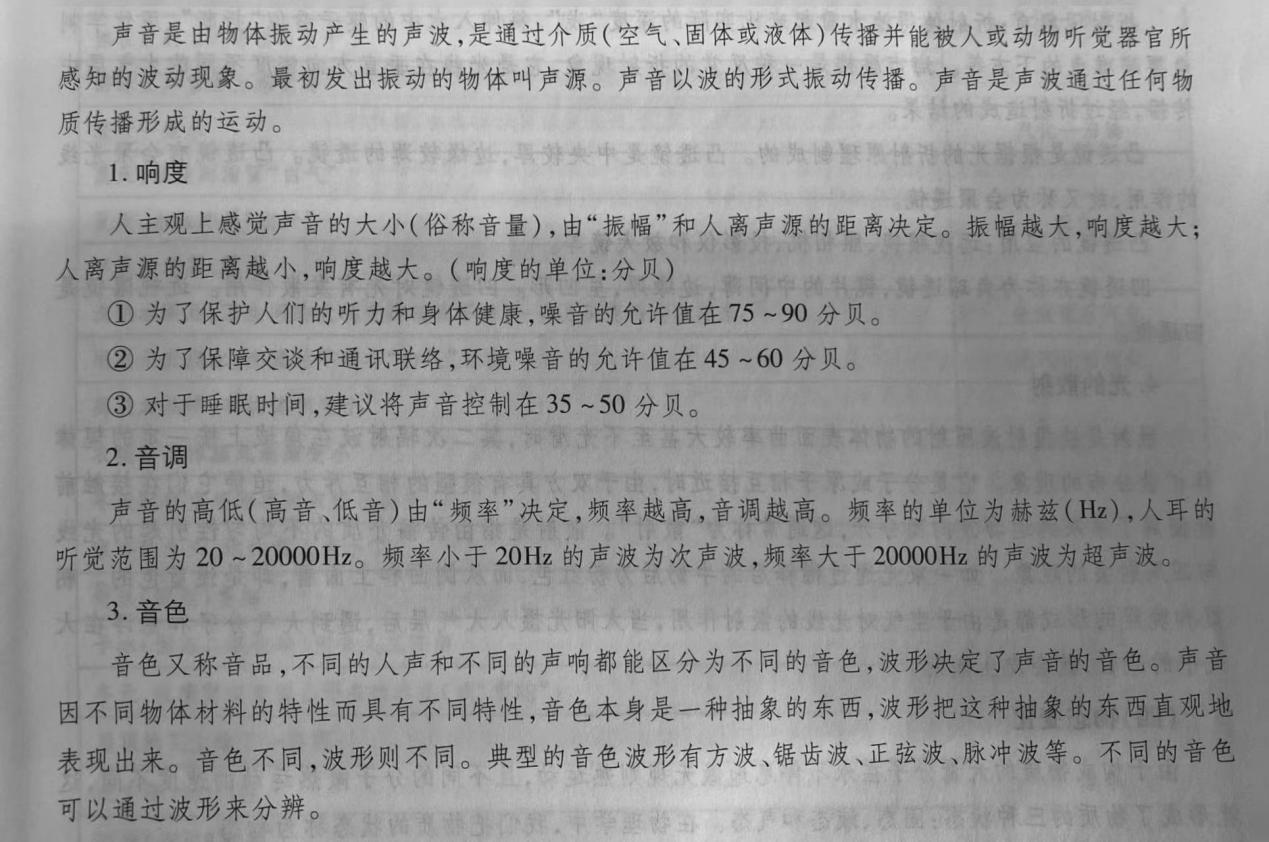 声音是由物体振动产生的声波,是通过介质(空气、固体或液体)传播并能被人或动物听觉器官所
感知的波动现象。最初发出振动的物体叫声源。声音以波的形式振动传播。声音是声波通过任何物
质传播形成的运动。
1. 响度
人主观上感觉声音的大小(俗称音量),由“振幅”和人离声源的距离决定。振幅越大,响度越大;
人离声源的距离越小,响度越大。(响度的单位:分贝)
① 为了保护人们的听力和身体健康,噪音的允许值在 75 ~90 分贝。
② 为了保障交谈和通讯联络,环境噪音的允许值在 45 ~60 分贝。
③ 对于睡眠时间,建议将声音控制在 35 ~50 分贝。
2. 音调
声音的高低(高音、低音)由“频率”决定,频率越高,音调越高。频率的单位为赫兹(Hz),人耳的
听觉范围为 20 ~20000Hz。频率小于 20Hz 的声波为次声波,频率大于 20000Hz 的声波为超声波。
3. 音色
音色又称音品,不同的人声和不同的声响都能区分为不同的音色,波形决定了声音的音色。声音
因不同物体材料的特性而具有不同特性,音色本身是一种抽象的东西,波形把这种抽象的东西直观地
表现出来。音色不同,波形则不同。典型的音色波形有方波、锯齿波、正弦波、脉冲波等。不同的音色
可以通过波形来分辨。